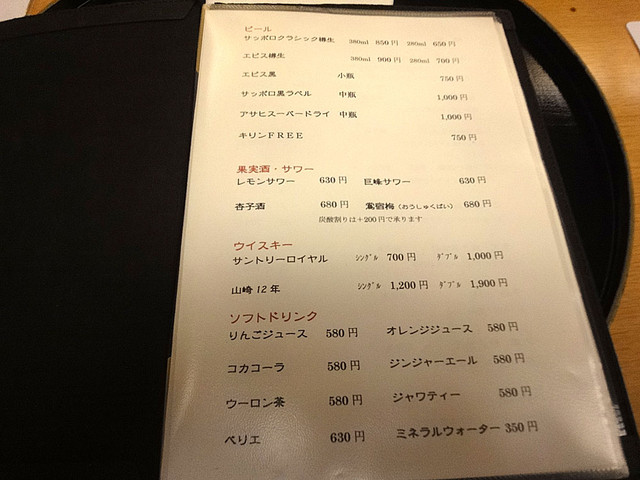 ビール
サッポロクラシック樽生 380ml 850円 280ml 650円
エビス樽生 380ml 900円 280ml 700円
エビス黒 小瓶 750円
サッポロ黒ラベル 中瓶 1,000円
アサヒスーパードライ 中瓶 1,000円
キリンFREE 750円
果実酒・サワー
レモンサワー 630円 巨峰サワー 630円
杏子酒 680円 鶯宿梅(おうしゅくばい) 680円
炭酸割りは+200円で承ります
ウイスキー
サントリーロイヤル ｼﾝｸﾞﾙ 700円 ﾀﾞﾌﾞﾙ 1,000円
山崎12年 ｼﾝｸﾞﾙ 1,200円 ﾀﾞﾌﾞﾙ 1,900円
ソフトドリンク
りんごジュース 580円 オレンジジュース 580円
コカコーラ 580円 ジンジャーエール 580円
ウーロン茶 580円 ジャワティー 580円
ペリエ 630円 ミネラルウォーター 350円